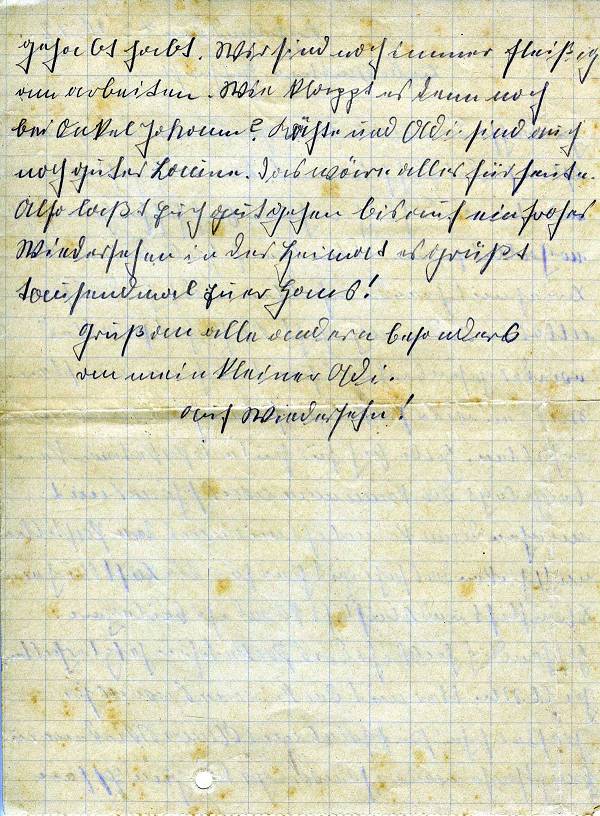 gehabt habt. Wir sind noch immer fleißig
am arbeiten. Wie klappt es denn noch
bei Onkel Johann? Käthe und Adi. sind auch
noch guter Laune. Das wäre alles für heute.
Also laßt Euch gut gehen bis auf ein frohes
Wiedersehen in der Heimat es grüßt
tausendmal Euer Hans!
Gruß an alle andern besonders
an mein kleiner Adi.
auf Wiedersehn!